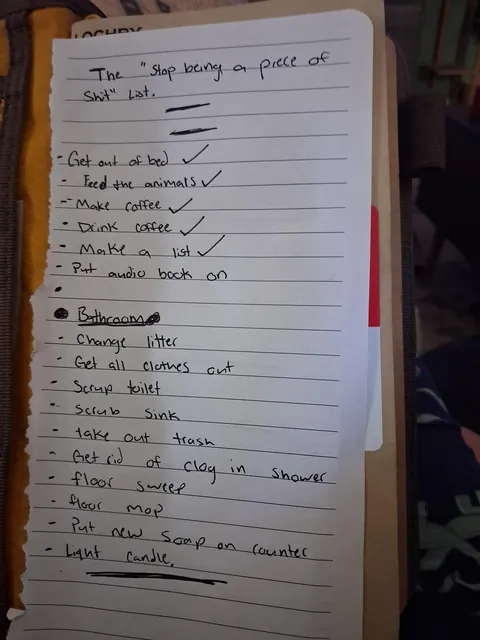 LOCHBY
The "Stop being a piece of
Shit" List.
- Get out of bed ✓
- Feed the animals ✓
- Make coffee ✓
- Drink coffee ✓
- Make a list ✓
- Put audio book on
•
• Bathroom
- Change litter
- Get all clothes out
- Scrup toilet
- Scrub sink
- take out trash
- Get rid of clog in shower
- floor sweep
- floor mop
- Put new soap on counter
- Light candle.